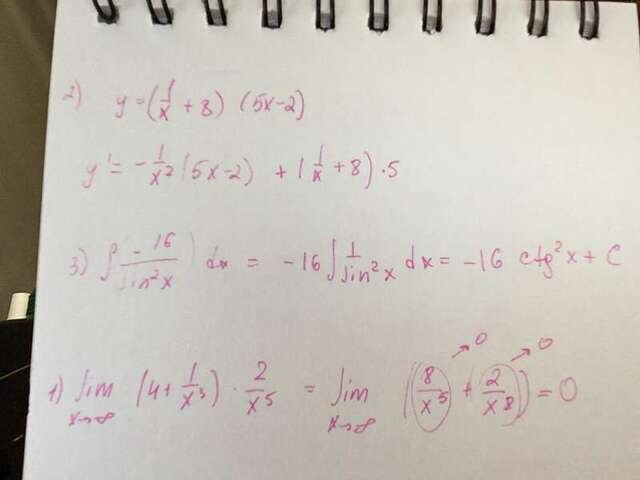 2) y = (1/x + 8) (5x-2)
y' = - 1/x² (5x-2) + (1/x + 8) · 5
3) ∫ (-16/sin²x) dx = -16 ∫ 1/sin²x dx = -16 ctg²x + C
1) lim x→∞ (4 + 1/x³) · 2/x⁵ = lim x→∞ (8/x⁵ →0 + 2/x⁸ →0) = 0